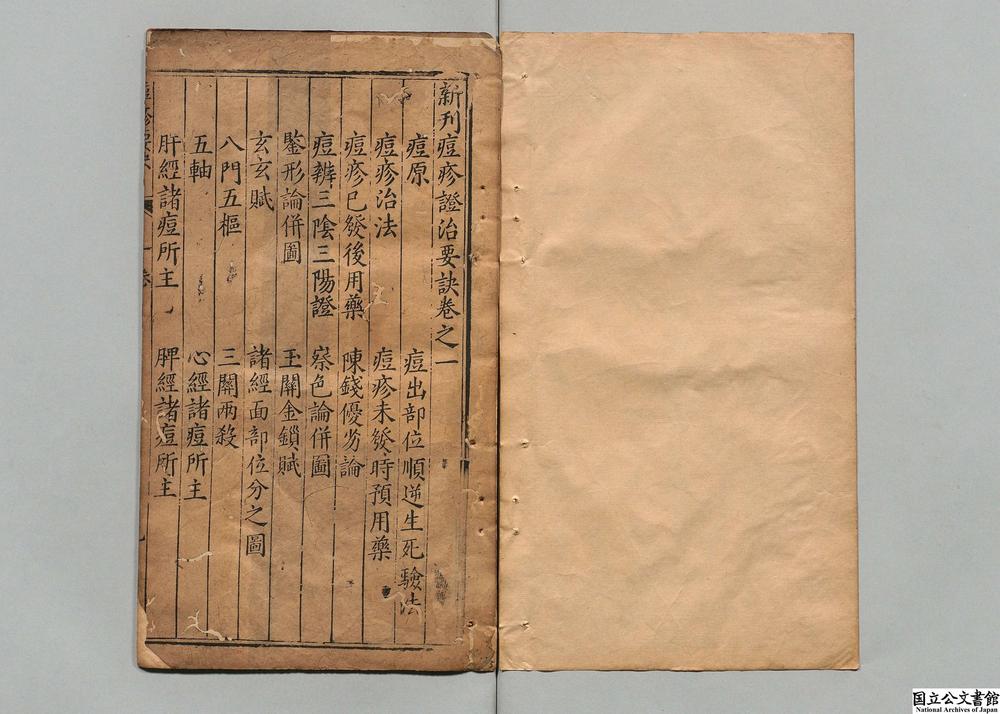 新刊痘疹證治要訣卷之一
痘原　痘出部位順逆生死驗法
痘疹治法　痘疹未發時預用藥
痘疹已發後用藥　陳錢優劣論
痘辨三陰三陽證　察色論併圖
鑒形論併圖　玉關金鎖賦
玄玄賦　諸經面部位分之圖
八門五樞　三關兩殺
五軸　心經諸痘所主
肝經諸痘所主　脾經諸痘所主
国立公文書館
National Archives of Japan